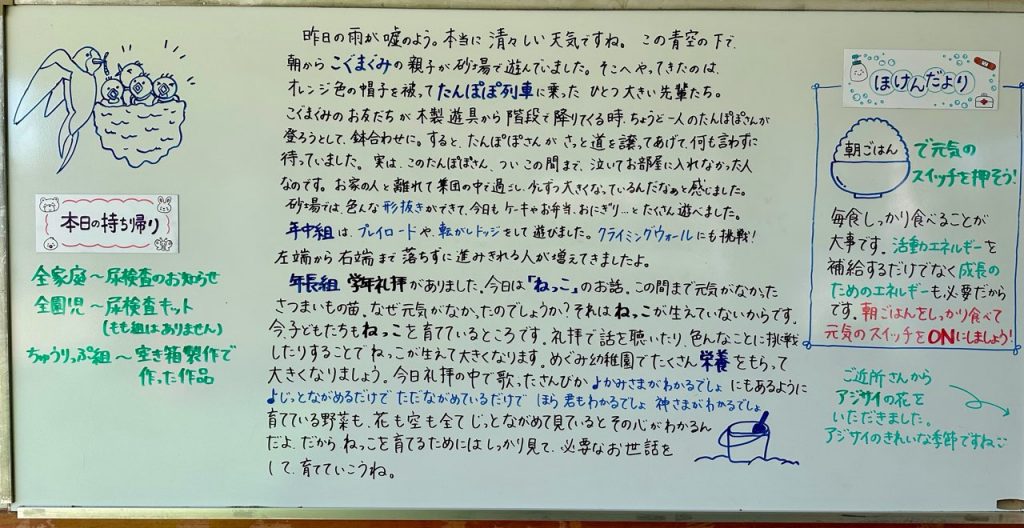 本日の持ち帰り
全家庭～尿検査のお知らせ
全園児～尿検査キット
(もも組はありません)
ちゅうりっぷ組～空き箱製作で
作った作品
昨日の雨が嘘のよう。本当に清々しい天気ですね。この青空の下で、
朝からこぐまぐみの親子が砂場で遊んでいました。そこへやってきたのは、
オレンジ色の帽子を被ってたんぽぽ列車に乗ったひとつ大きい先輩たち。
こぐまぐみのお友だちが木製遊具から階段で降りてくる時、ちょうど一人のたんぽぽさんが
登ろうとして、鉢合わせに。すると、たんぽぽさんがさっと道を譲ってあげて、何も言わずに
待っていました。実は、このたんぽぽさん、ついこの間まで、泣いてお部屋に入れなかった人
なのです。お家の人と離れて集団の中で過ごし、少しずつ大きくなっているんだなあと感じました。
砂場では、色んな形抜きができて、今日もケーキやお弁当、おにぎり…とたくさん遊べました。
年中組は、プレイロードや、転がしドッジをして遊びました。クライミングウォールにも挑戦!
左端から右端まで落ちずに進みきれる人が増えてきましたよ。
年長組 学年礼拝がありました。今日は「ねっこ」のお話。この間まで元気がなかった
さつまいもの苗、なぜ元気がなかったのでしょうか?それはねっこが生えていないからです。
今、子どもたちもねっこを育てているところです。礼拝で話を聴いたり、色んなことに挑戦
したりすることでねっこが生えて大きくなります。めぐみ幼稚園でたくさん栄養をもらって
大きくなりましょう。今日礼拝の中で歌ったさんびか よかみさまがわかるでしょ にもあるように
よじっとながめるだけで ただながめているだけで ほら 君もわかるでしょ 神さまがわかるでしょ
育てている野菜も、花も空も全てじっとながめて見ているとその心がわかるん
だよ。だから ねっこを育てるためにはしっかり見て、必要なお世話を
して、育てていこうね。
ほけんだより
朝ごはん
で元気の
スイッチを押そう!
毎食しっかり食べることが
大事です。活動エネルギーを
補給するだけでなく成長の
ためのエネルギーも必要だから
です。朝ごはんをしっかり食べて
元気のスイッチをONにしましょう!
ご近所さんから
アジサイの花を
いただきました。
アジサイのきれいな季節ですね